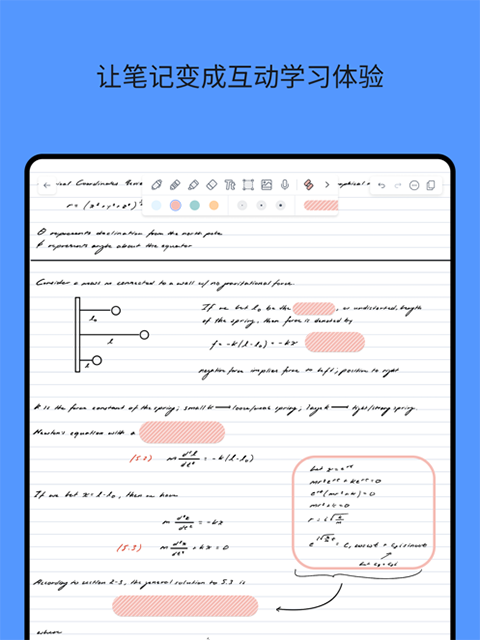 让笔记变成互动学习体验
r = (x²+y²+z²)
θ represents declination from the north pole
φ represents angle about the equator
Consider a mass m connected to a wall w/ no gravitational force.
If we let l₀ be the , or undistorted, length
of the spring, then force is denoted by
f = -k(l-l₀) = -kx
negative force implies force to left; position to right
l₀
l
l
k is the force constant of the spring; small k → loose/weak spring, large k → tight/strong spring.
Newton's equation with a
(5.2) m d²l/dt² = -k(l-l₀)
If we let x = l-l₀, then we have
m d²x/dt² = -kx
(5.3) m d²x/dt² + kx = 0
let x = e^rt
mr²e^rt + ke^rt = 0
e^rt(mr²+k) = 0
mr²+k = 0
r = i√(k/m)
According to section 2-3, the general solution to 5.3 is
where